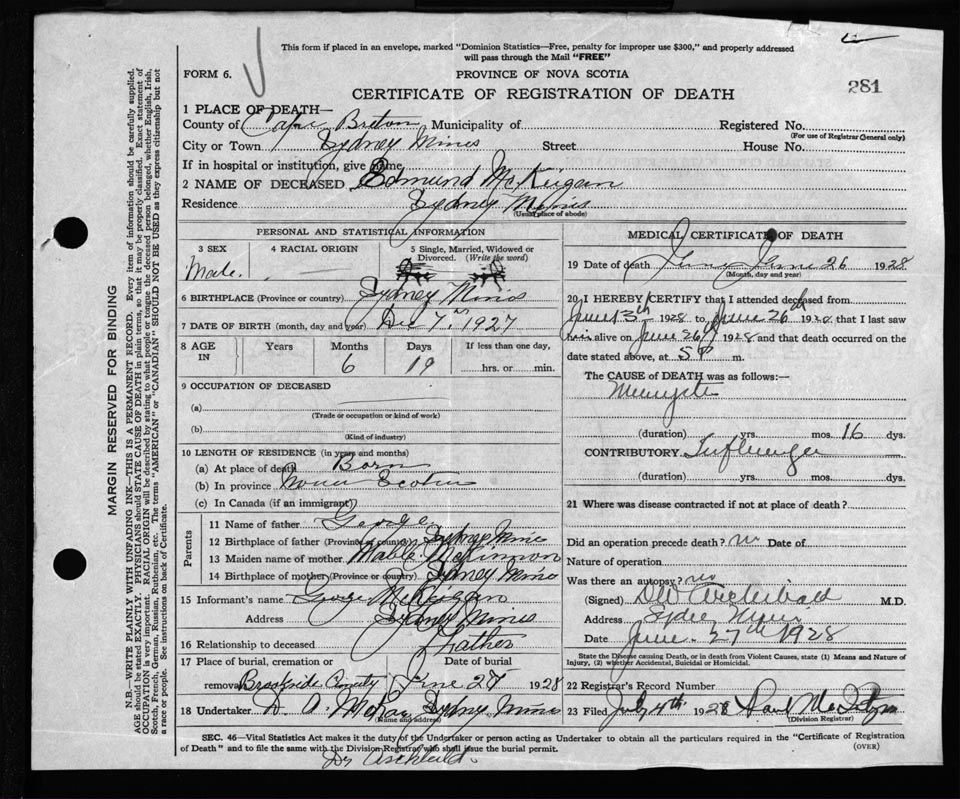 This form if placed in an envelope, marked "Dominion Statistics—Free, penalty for improper use $300," and properly addressed
will pass through the Mail "FREE"
FORM 6.
PROVINCE OF NOVA SCOTIA
CERTIFICATE OF REGISTRATION OF DEATH
281
MARGIN RESERVED FOR BINDING
N.B.—WRITE PLAINLY WITH UNFADING INK—THIS IS A PERMANENT RECORD. Every item of information should be carefully supplied.
AGE should be stated EXACTLY. PHYSICIANS should STATE CAUSE OF DEATH in plain terms, so that it may be properly classified. Exact statement of
OCCUPATION is very important. RACIAL ORIGIN will be described by stating to what people or tongue the deceased person belonged, whether English, Irish,
Scotch, French, German, Russian, Ruthenian, etc. The terms "AMERICAN" or "CANADIAN" SHOULD NOT BE USED as they express citizenship but not
a race or people. See instructions on back of Certificate.
1 PLACE OF DEATH—
County of Cape Breton Municipality of Registered No.
(For use of Registrar General only)
City or Town Sydney Mines Street House No.
If in hospital or institution, give name
2 NAME OF DECEASED Edmund McKeigan
Residence Sydney Mines
(Usual place of abode)
PERSONAL AND STATISTICAL INFORMATION
3 SEX
Male.
4 RACIAL ORIGIN
5 Single, Married, Widowed or
Divorced. (Write the word)
6 BIRTHPLACE (Province or country) Sydney Mines
7 DATE OF BIRTH (month, day and year) Dec 7th 1927
8 AGE IN
Years Months Days If less than one day,
6 19 hrs. or min.
9 OCCUPATION OF DECEASED
(a)
(Trade or occupation or kind of work)
(b)
(Kind of industry)
10 LENGTH OF RESIDENCE (in years and months)
(a) At place of death Born
(b) In province Nova Scotia
(c) In Canada (if an immigrant)
Parents
11 Name of father George
12 Birthplace of father (Province or country) Sydney Mines
13 Maiden name of mother Mable McKinnon
14 Birthplace of mother (Province or country) Sydney Mines
15 Informant's name George McKeigan
Address Sydney Mines
16 Relationship to deceased Father
17 Place of burial, cremation or
removal Brookside County
Date of burial
June 27 1928
18 Undertaker D. A. McRae Sydney Mines
(Name and address)
MEDICAL CERTIFICATE OF DEATH
19 Date of death June 26 1928
(Month, day and year)
20 I HEREBY CERTIFY that I attended deceased from
June 13th 1928 to June 26th 1928 that I last saw
him alive on June 26th 1928 and that death occurred on the
date stated above, at 5 P m.
The CAUSE of DEATH was as follows:—
(duration) yrs. mos. 16 dys.
CONTRIBUTORY Influenza
(duration) yrs. mos. dys.
21 Where was disease contracted if not at place of death?
Did an operation precede death? no Date of
Nature of operation
Was there an autopsy? no
(Signed) DW Archibald M.D.
Address Sydney Mines
Date June 27th 1928
State the Disease causing Death, or in death from Violent Causes, state (1) Means and Nature of
Injury, (2) whether Accidental, Suicidal or Homicidal.
22 Registrar's Record Number
23 Filed July 4th 1928
(Division Registrar)
SEC. 46—Vital Statistics Act makes it the duty of the Undertaker or person acting as Undertaker to obtain all the particulars required in the "Certificate of Registration
of Death" and to file the same with the Division Registrar who shall issue the burial permit.
(OVER)
Dr Archibald.